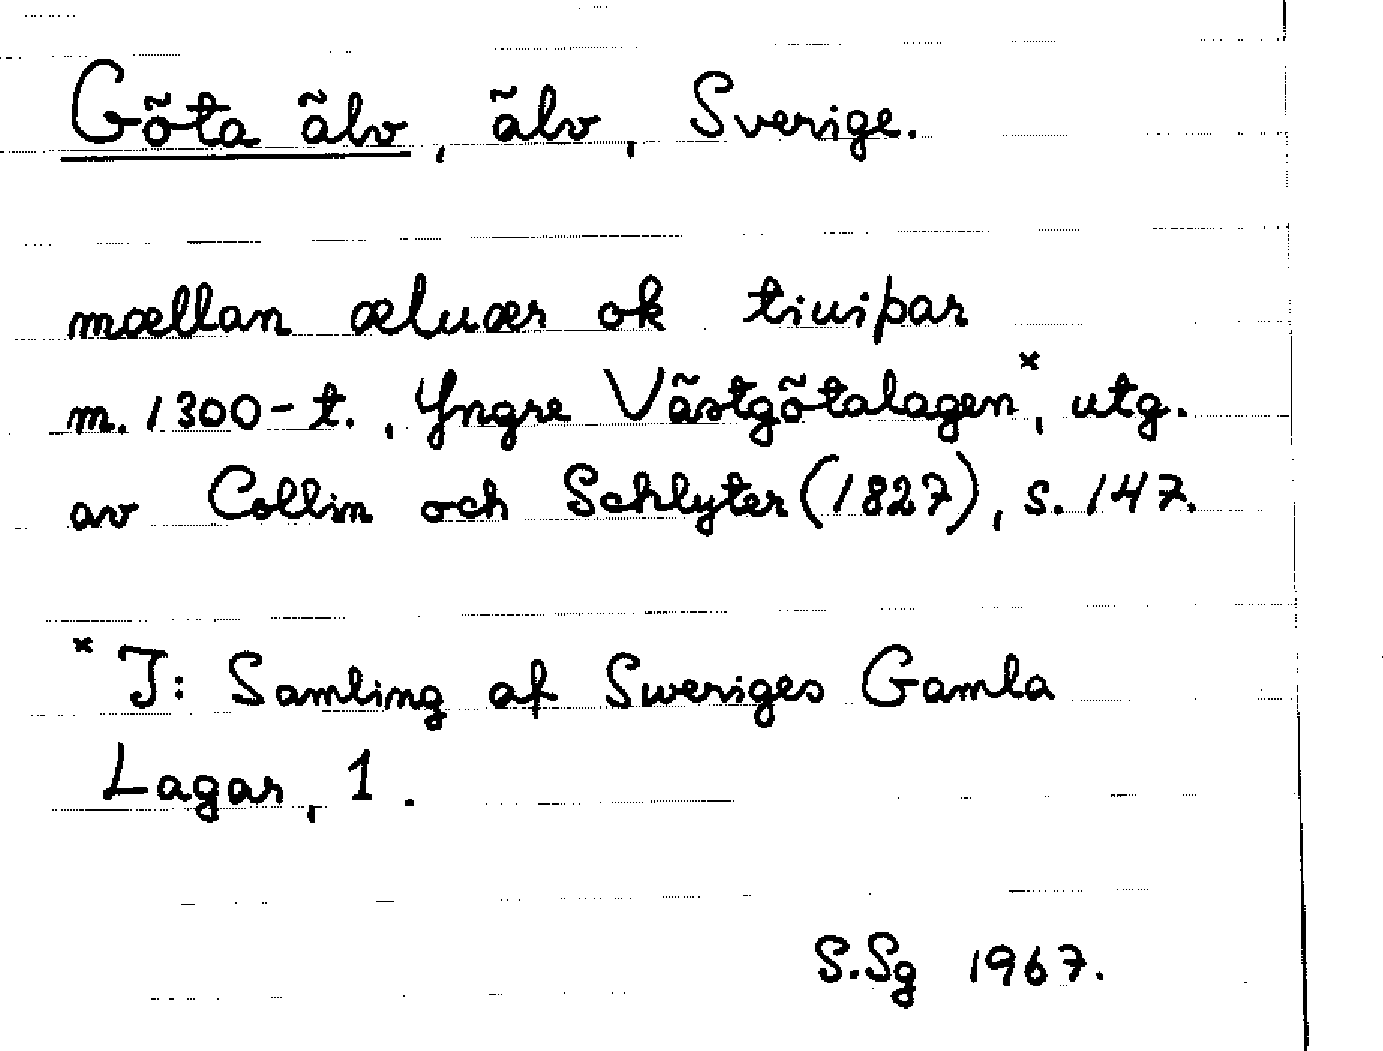 Göta älv, älv, Sverige.
mællan æluær ok tiuiþar
m. 1300-t., Yngre Västgötalagen×, utg.
av Collin och Schlyter (1827), s. 147.
× I: Samling af Sweriges Gamla
Lagar, 1.
S.Sg 1967.